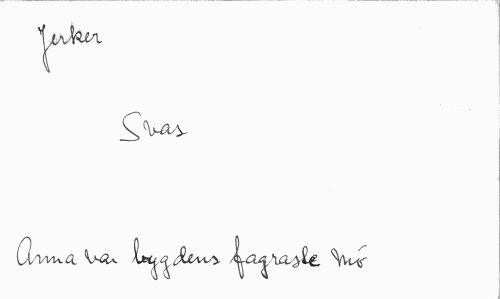 Jerker
Svas
Anna var bygdens fagraste mö